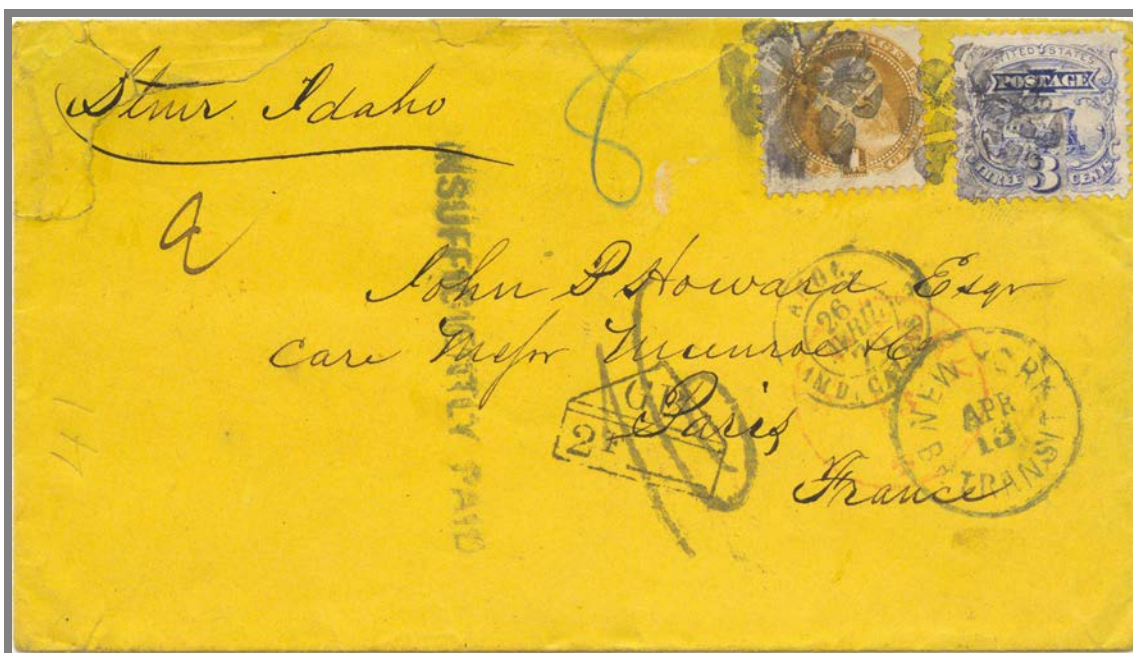 Stmr Idaho
8
POSTAGE
1
UNITED STATES
POSTAGE
THREE 3 CENTS
INSUFFICIENTLY PAID
John P Howard Esqr
care Messr Munroe & Co
Paris
France
26
AVRIL
GB
2F
NEW YORK
APR
13
TRANSIT